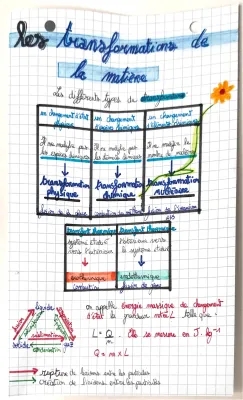 les transformations de
la matière
Les différents types de transformations
un changement d'état physique
Il ne modifie pas les espèces chimiques
transformation physique
fusion de la glace
un changement d'espèces chimiques
Il ne modifie pas les éléments chimiques
transformation chimique
combustion du méthane
un changement d'éléments chimiques
Il modifie les noyaux de matière
transformation nucléaire
fission de l'uranium
transfert thermique
système étudié vers l'extérieur
exothermique
combustion
transfert thermique
l'extérieur vers le système étudié
endothermique
fusion de glace
liquide
solide
gaz
fusion
sublimation
condensation
on appelle énergie massique de changement
d'état la grandeur notée L telle que :
L = Q/m. Elle se mesure en J.kg⁻¹
Q = m × L
→ rupture de liaisons entre les particules
→ création de liaisons entre les particules